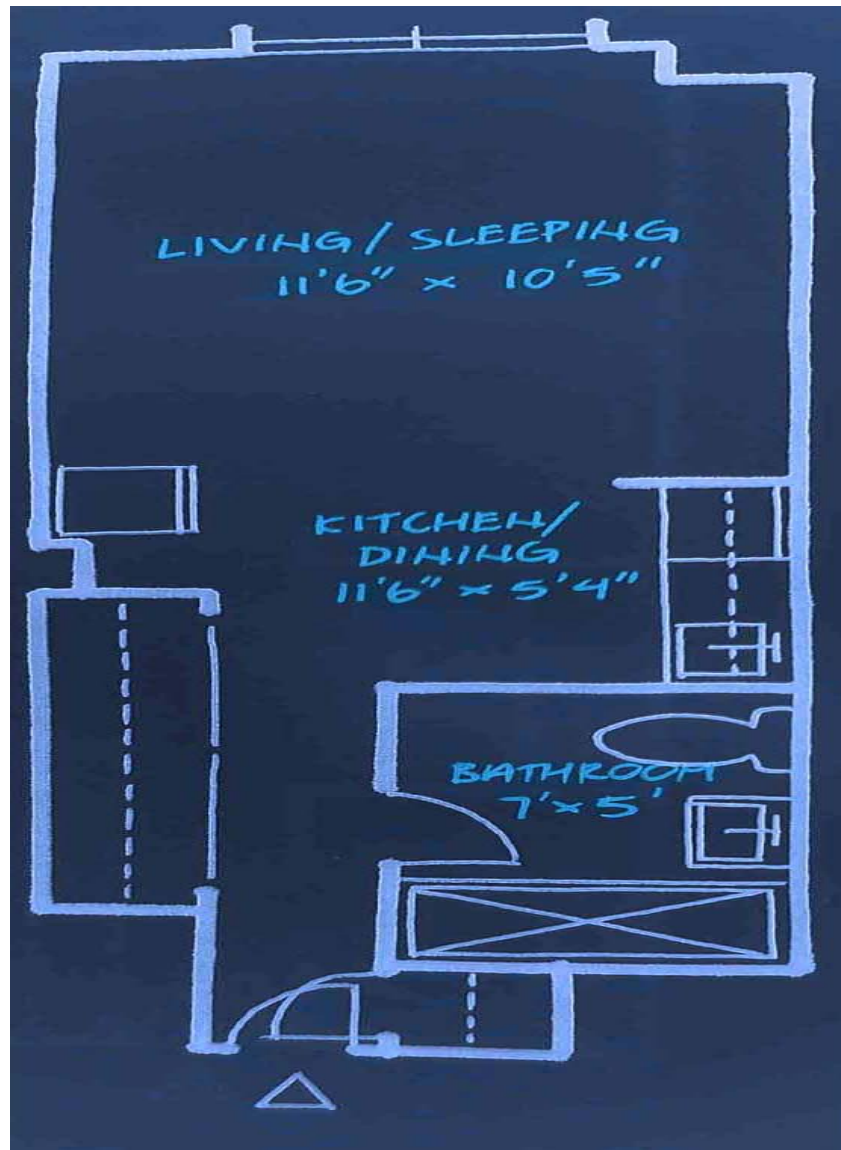 LIVING / SLEEPING
11'6" × 10'5"
KITCHEN/
DINING
11'6" × 5'4"
BATHROOM
7'×5'